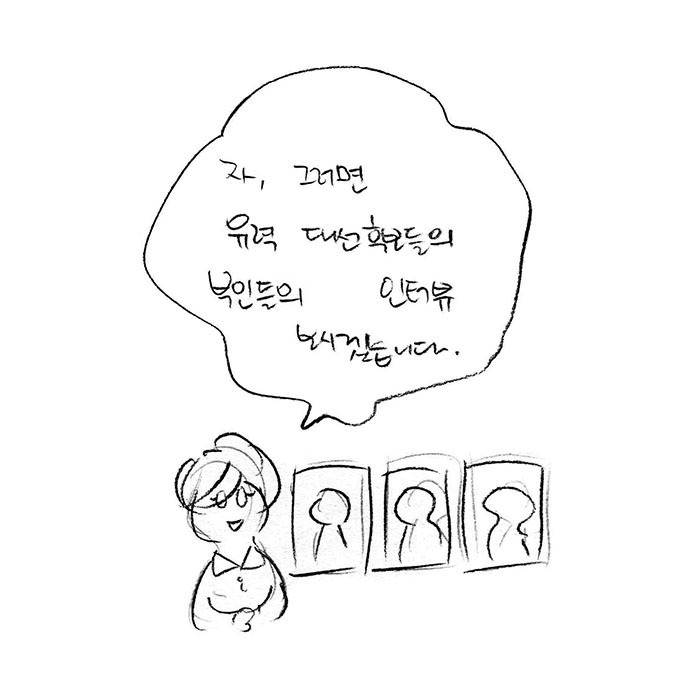 자, 그러면
유력 대선후보들의
부인들의 인터뷰
보시겠습니다.